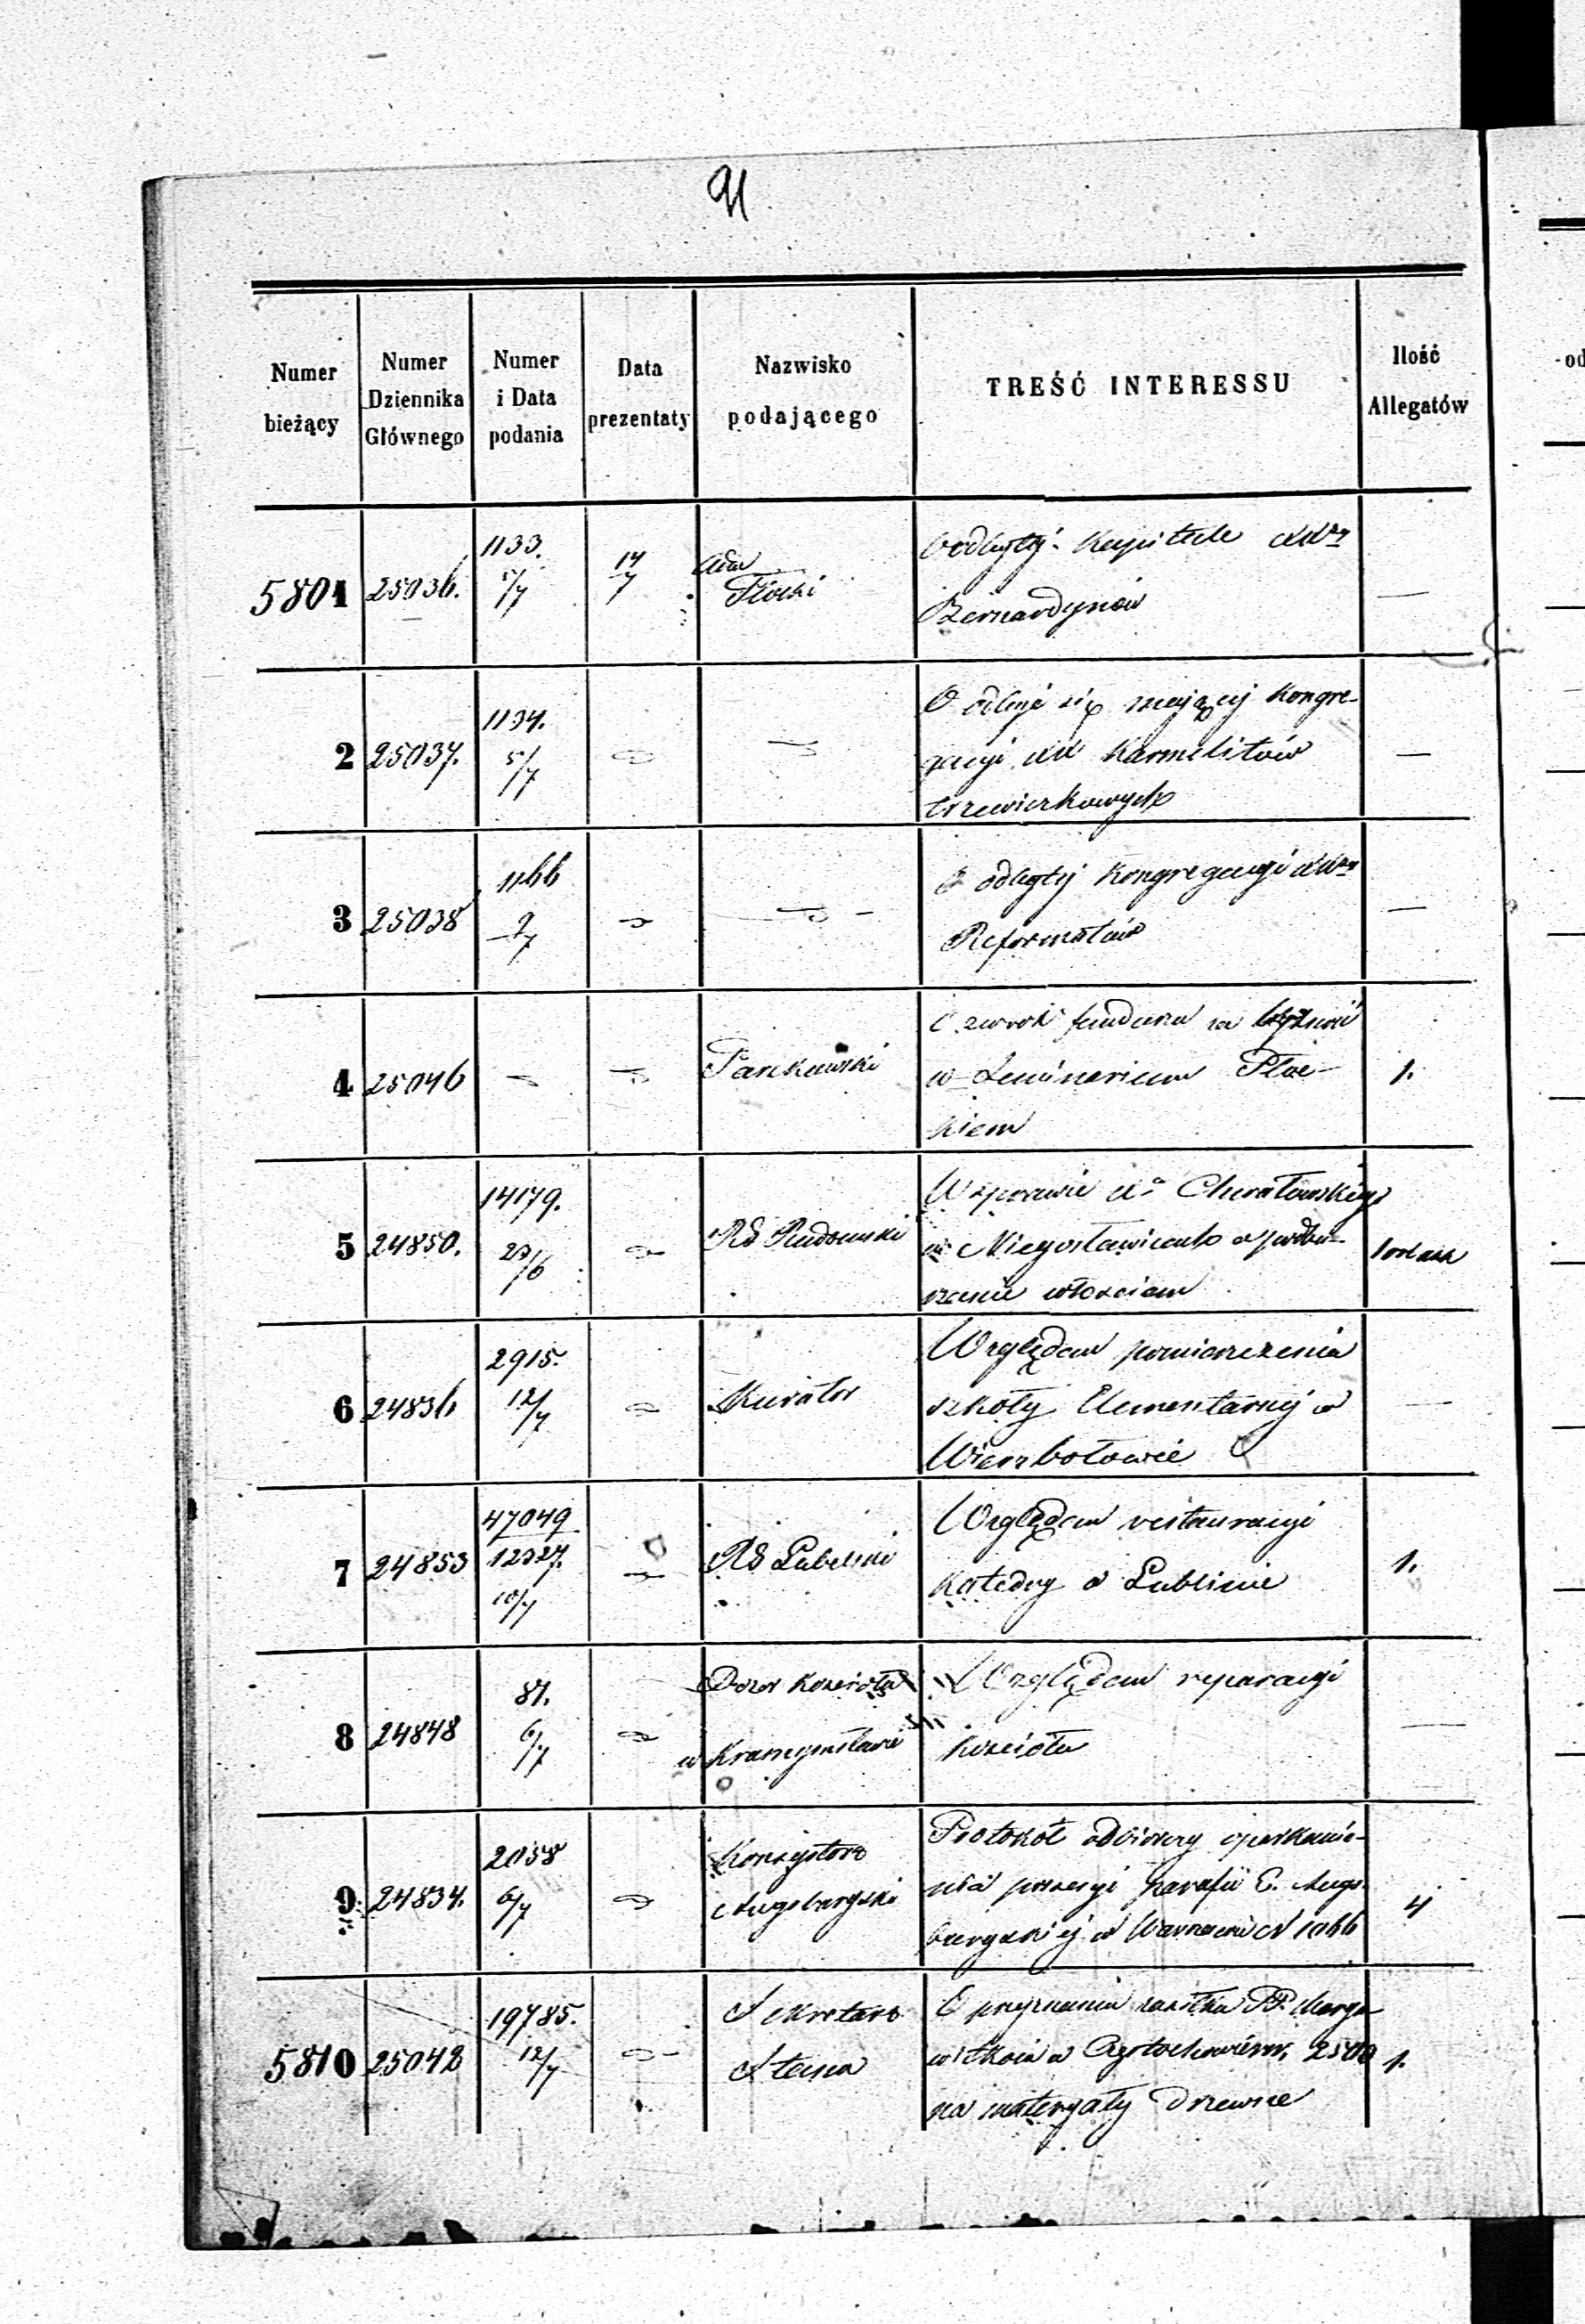 91
Numer bieżący
Numer Dziennika Głównego
Numer i Data podania
Data prezentaty
Nazwisko podającego
TREŚĆ INTERESSU
Ilość Allegatów
5801 25036. 1133. 5/7 14/7 Adm Płocki
odbytej Kapitule XX
Bernardynów —
2 25037. 1134. 5/7
O odbyć się mającej Kongre-
gacyi XX Karmelitów
trzewiczkowych —
3 25038 1166 9/7
O odbytej Kongregacyi XX
Reformatów —
4 25046 Pankowski
O zwrot fundusza za
w Seminarium Płoc-
kiem 1.
5 24850. 14179. 23/6 RG Radomski
W sprawie Xa
w
włościan
6 24836 2915. 12/7 Kurator
Względem pomieszczenia
szkoły Elementarnej w
Wierzbołowie —
7 24853 47049 12327. 10/7 RG Lubelski
Względem restauracyi
Katedry w Lublinie 1.
8 24848 87. 6/7 Dozor Kościoła
w Krasnymstawie
Względem reparacyi
Kościoła —
9 24834. 2058 6/7 Konsystorz
Augsburgski
Protokół odbiorczy oparkanie-
nia posesyi parafii E. Augs-
burgskiej w Warszawie N 1066 4
5810 25042 19785. 12/7 Sekretarz
Stanu
O przyznaniu zasiłku PP. Marya-
witkom w Częstochowie rs. 2500
na materyały drzewne 1.